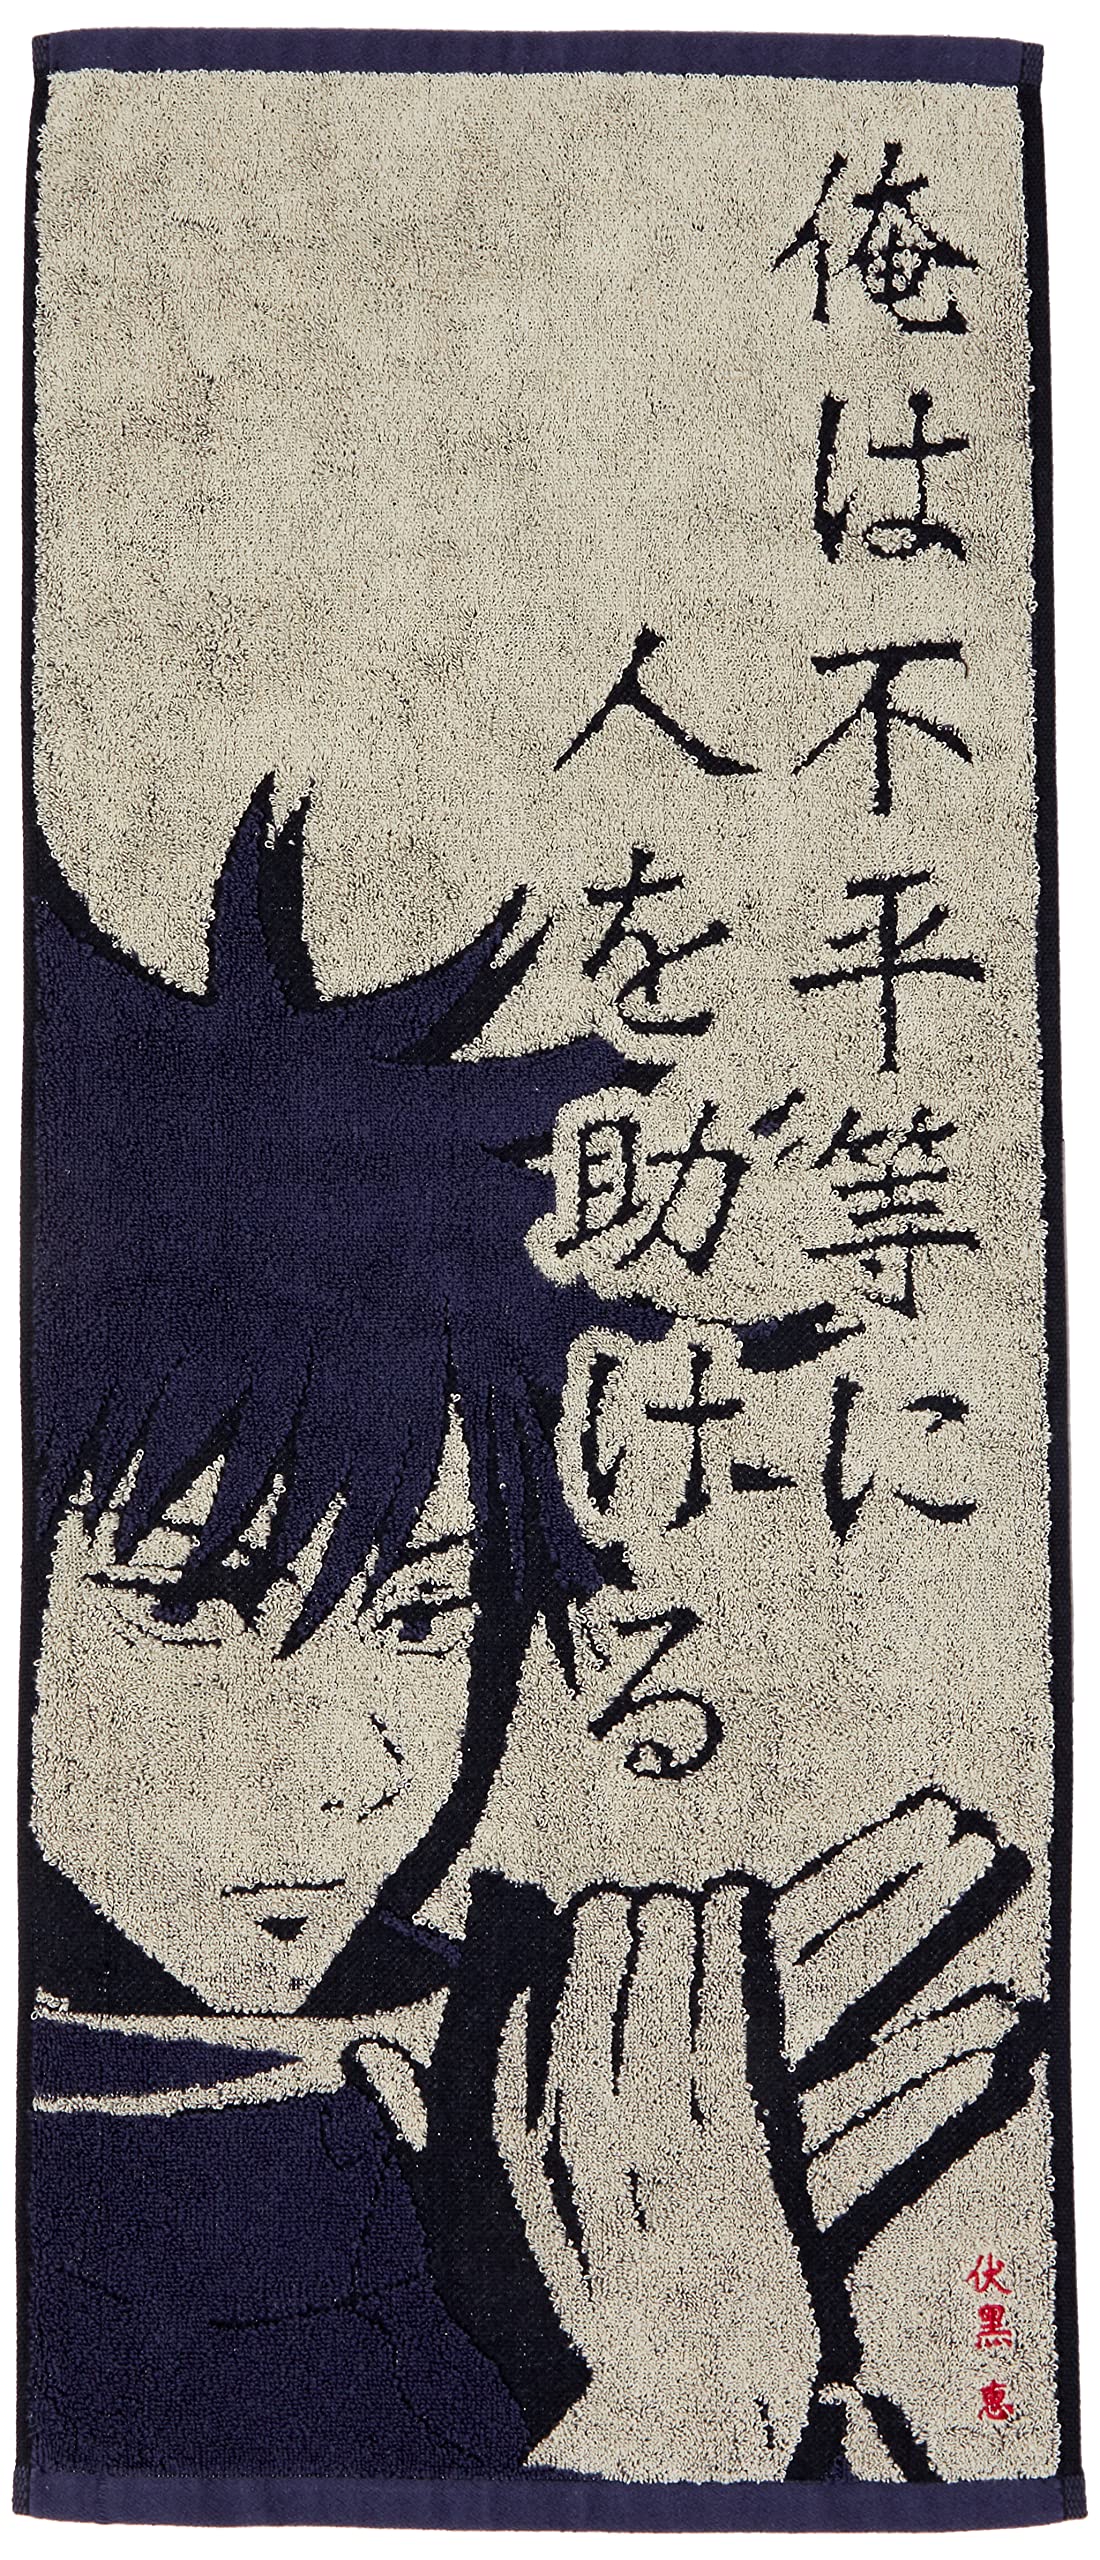 俺は不平等に
人を助ける
伏黒恵